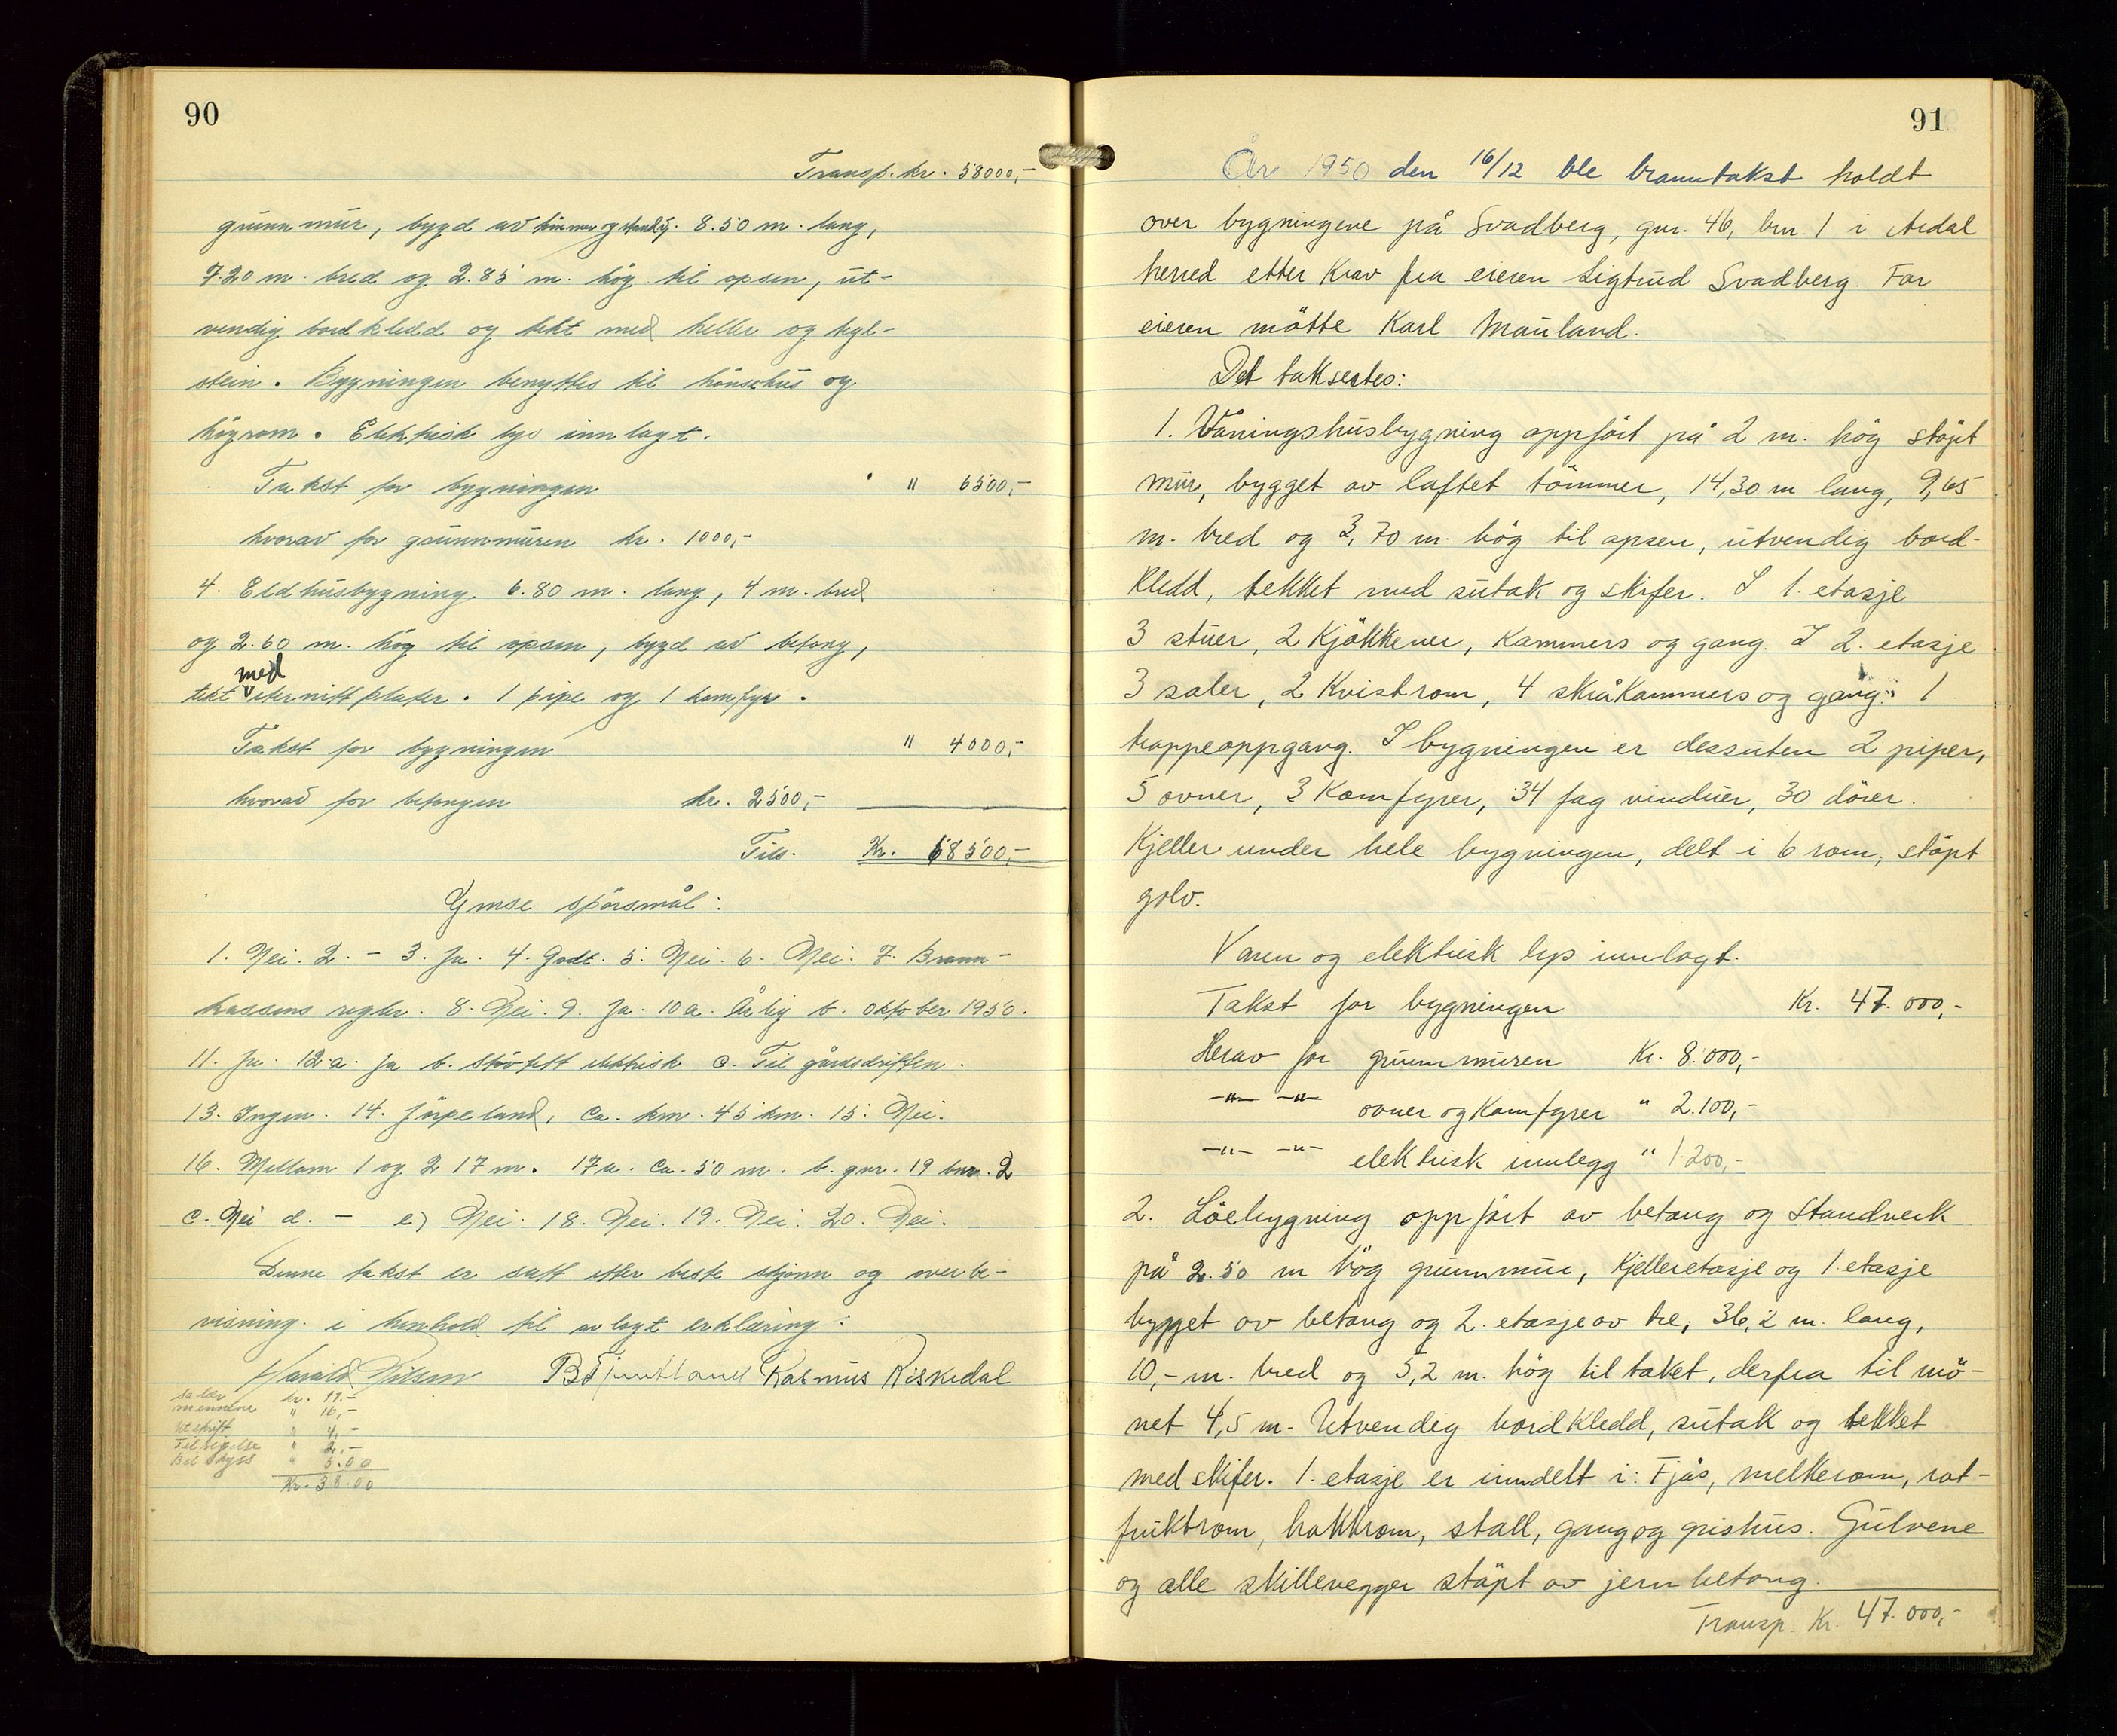 90
Transp. kr. 58000,-
grunnmur, bygd av tömmer og stendv. 8.50 m. lang,
7.20 m. bred og 2.85 m. hög til opsen, ut-
vendig bordkledd og tekt med heller og tegl-
stein. Bygningen benyttes til hönsehus og
högrom. Elektrisk lys innlagt.
Takst for bygningen " 6500,-
hvorav for grunnmuren kr. 1000,-
4. Eldhusbygning. 6.80 m. lang, 4 m. bred
og 2.60 m. hög til opsen, bygd av betong,
med
tekt eternittplater. 1 pipe og 1 komfyr.
Takst for bygningen " 4000,-
hvorav for betongen kr. 2500,-
Tils. Kr. 68500,-
Ymse spörsmål:
1. Nei. 2. - 3. Ja. 4. Godt. 5. Nei. 6. Nei. 7. Brann-
kassens regler. 8. Nei. 9. Ja. 10a. Årlig b. oktober 1950.
11. Ja. 12.a. ja b. Stövtett elektrisk c. Til gårdsdriften.
13. Ingen. 14. Jörpeland, ca. km. 45 km. 15. Nei.
16. Mellom 1 og 2 17 m. 17a. Ca. 50 m. b. gnr. 19 bnr. 2
c. Nei d. - e) Nei. 18. Nei. 19. Nei. 20. Nei.
Denne takst er satt etter beste skjönn og overbe-
visning i henhold til avlagt erklæring:
Harald Nilsen B Tjentland Rasmus Riskedal
kr. 11.-
mennene " 16,-
Utskrift " 4,-
Tilsigelse " 2,-
Bil skyss " 5.00
Kr. 38.00
91
År 1950 den 16/12 ble branntakst holdt
over bygningene på Svadberg, gnr. 46, bnr. 1 i Årdal
herred etter krav fra eieren Sigtrud Svadberg. For
eieren mötte Karl Mauland.
Det takseres:
1. Våningshusbygning oppfört på 2 m. hög stöpt
mur, bygget av laftet tömmer, 14,30 m lang, 9,65
m. bred og 3,70 m. hög til opsen, utvendig bord-
kledd, tekket med sutak og skifer. I 1. etasje
3 stuer, 2 kjökkener, kammers og gang. I 2. etasje
3 saler, 2 kvistrom, 4 skråkammers og gang. 1
trappeoppgang. I bygningen er dessuten 2 piper,
5 ovner, 3 komfyrer, 34 fag vinduer, 30 dörer.
Kjeller under hele bygningen, delt i 6 rom, stöpt
golv.
Vann og elektrisk lys innlagt.
Takst for bygningen Kr. 47.000,-
Herav for grunnmuren Kr. 8.000,-
-"- -"- ovner og komfyrer " 2.100,-
-"- -"- elektrisk innlegg " 1.200,-
2. Löebygning oppfört av betong og standverk
på 2.50 m hög grunnmur, kjelleretasje og 1. etasje
bygget av betong og 2. etasje av tre, 36,2 m. lang,
10,- m. bred og 5,2 m. hög til taket, derfra til mö-
net 4,5 m. Utvendig bordkledd, sutak og tekket
med skifer. 1. etasje er inndelt i: Fjös, melkerom, rot-
fruktrom, hakkrom, stall, gang og grishus. Gulvene
og alle skillevegger stöpt av jernbetong.
Transp. Kr. 47.000,-